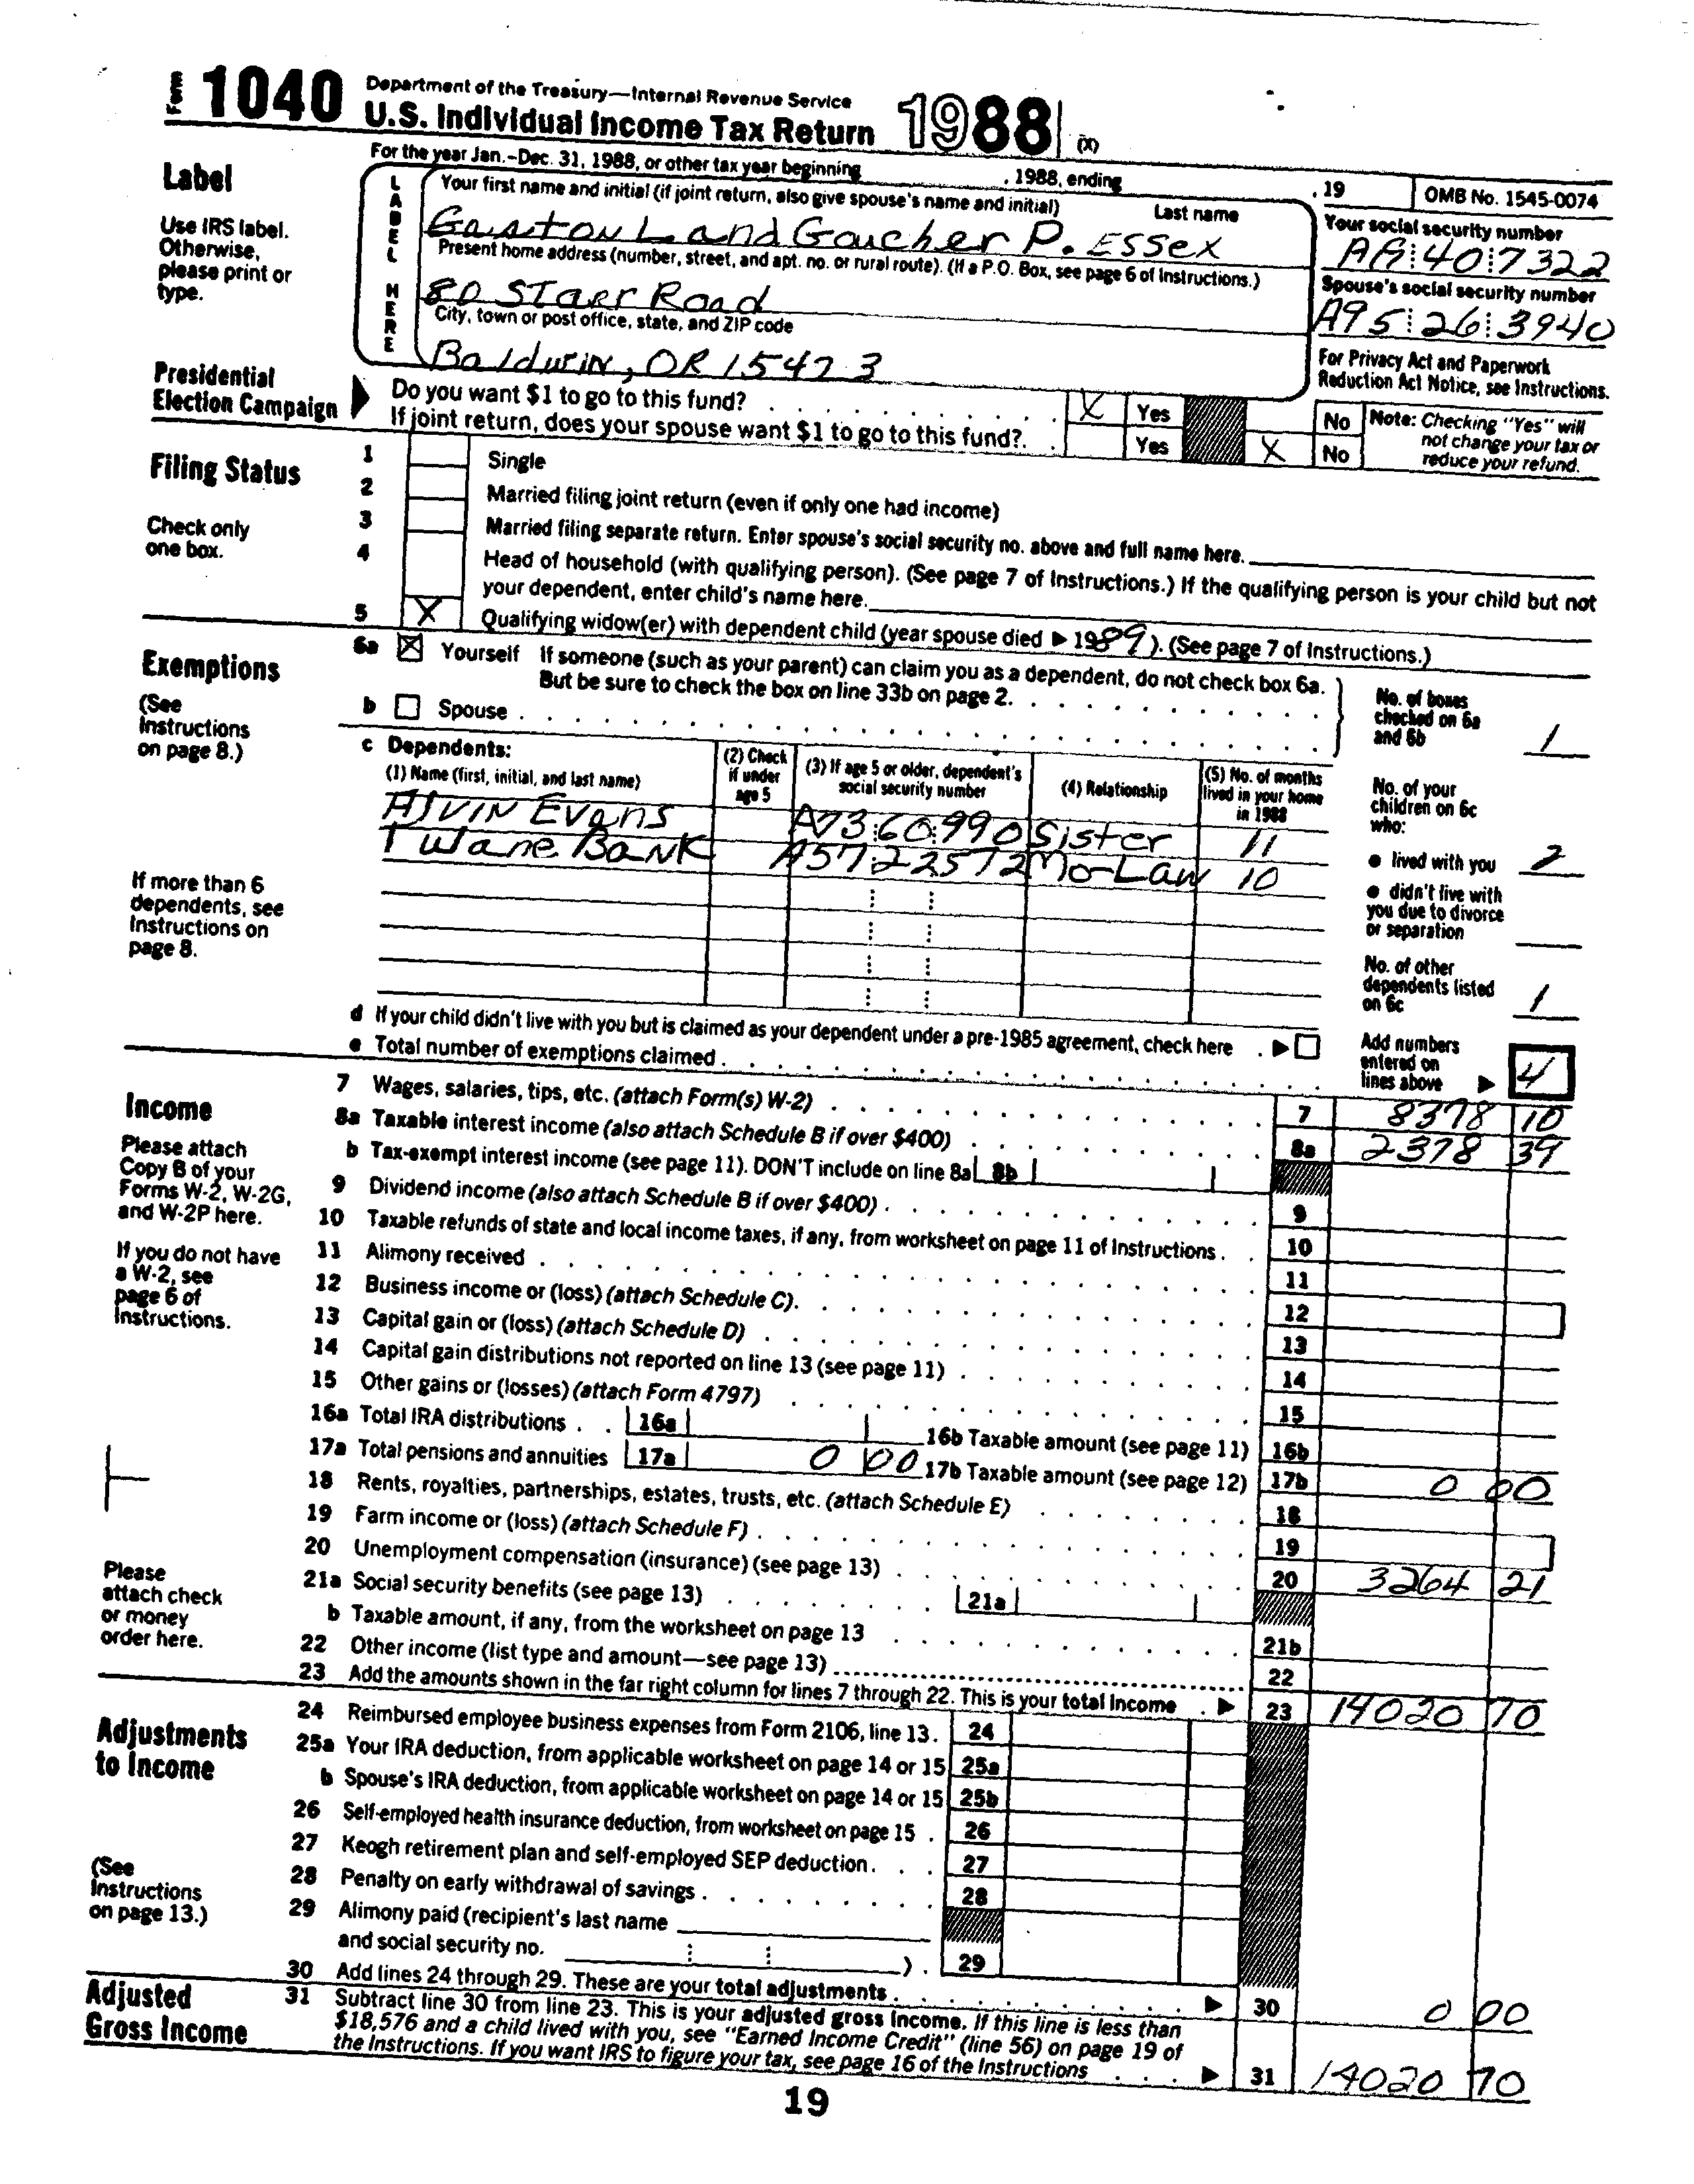 Form 1040 Department of the Treasury—Internal Revenue Service
U.S. Individual Income Tax Return 1988 (X)
For the year Jan.–Dec. 31, 1988, or other tax year beginning , 1988, ending , 19 OMB No. 1545-0074
Label
Use IRS label. Otherwise, please print or type.
LABEL HERE
Your first name and initial (if joint return, also give spouse's name and initial) Last name
Gaston L and Gaucher P. Essex
Your social security number
A A 40 7322
Present home address (number, street, and apt. no. or rural route). (If a P.O. Box, see page 6 of Instructions.)
80 Starr Road
Spouse's social security number
A95 26 3940
City, town or post office, state, and ZIP code
Baldwin, OR 15473
For Privacy Act and Paperwork Reduction Act Notice, see Instructions.
Presidential Election Campaign
Do you want $1 to go to this fund? X Yes No
If joint return, does your spouse want $1 to go to this fund? Yes X No
Note: Checking "Yes" will not change your tax or reduce your refund.
Filing Status
Check only one box.
1 Single
2 Married filing joint return (even if only one had income)
3 Married filing separate return. Enter spouse's social security no. above and full name here.
4 Head of household (with qualifying person). (See page 7 of Instructions.) If the qualifying person is your child but not
your dependent, enter child's name here.
5 X Qualifying widow(er) with dependent child (year spouse died ▶ 1989). (See page 7 of Instructions.)
Exemptions
(See Instructions on page 8.)
6a X Yourself If someone (such as your parent) can claim you as a dependent, do not check box 6a.
But be sure to check the box on line 33b on page 2.
b Spouse
No. of boxes checked on 6a and 6b 1
c Dependents:
(1) Name (first, initial, and last name) (2) Check if under age 5 (3) If age 5 or older, dependent's social security number (4) Relationship (5) No. of months lived in your home in 1988
Alvin Evans A73 60 990 Sister 11
Tulane Bank A57 22572 Mo-Law 10
No. of your children on 6c who:
● lived with you 2
● didn't live with you due to divorce or separation
No. of other dependents listed on 6c 1
If more than 6 dependents, see Instructions on page 8.
d If your child didn't live with you but is claimed as your dependent under a pre-1985 agreement, check here ▶
e Total number of exemptions claimed
Add numbers entered on lines above ▶ 4
Income
Please attach Copy B of your Forms W-2, W-2G, and W-2P here.
If you do not have a W-2, see page 6 of Instructions.
Please attach check or money order here.
7 Wages, salaries, tips, etc. (attach Form(s) W-2) 7 8378 10
8a Taxable interest income (also attach Schedule B if over $400) 8a 2378 39
b Tax-exempt interest income (see page 11). DON'T include on line 8a 8b
9 Dividend income (also attach Schedule B if over $400) 9
10 Taxable refunds of state and local income taxes, if any, from worksheet on page 11 of Instructions 10
11 Alimony received 11
12 Business income or (loss) (attach Schedule C) 12
13 Capital gain or (loss) (attach Schedule D) 13
14 Capital gain distributions not reported on line 13 (see page 11) 14
15 Other gains or (losses) (attach Form 4797) 15
16a Total IRA distributions 16a 16b Taxable amount (see page 11) 16b
17a Total pensions and annuities 17a 0 00 17b Taxable amount (see page 12) 17b 0 00
18 Rents, royalties, partnerships, estates, trusts, etc. (attach Schedule E) 18
19 Farm income or (loss) (attach Schedule F) 19
20 Unemployment compensation (insurance) (see page 13) 20 3264 21
21a Social security benefits (see page 13) 21a
b Taxable amount, if any, from the worksheet on page 13 21b
22 Other income (list type and amount—see page 13) 22
23 Add the amounts shown in the far right column for lines 7 through 22. This is your total income ▶ 23 14020 70
Adjustments to Income
(See Instructions on page 13.)
24 Reimbursed employee business expenses from Form 2106, line 13. 24
25a Your IRA deduction, from applicable worksheet on page 14 or 15 25a
b Spouse's IRA deduction, from applicable worksheet on page 14 or 15 25b
26 Self-employed health insurance deduction, from worksheet on page 15 26
27 Keogh retirement plan and self-employed SEP deduction 27
28 Penalty on early withdrawal of savings 28
29 Alimony paid (recipient's last name
and social security no. ) 29
30 Add lines 24 through 29. These are your total adjustments ▶ 30 0 00
Adjusted Gross Income
31 Subtract line 30 from line 23. This is your adjusted gross income. If this line is less than
$18,576 and a child lived with you, see "Earned Income Credit" (line 56) on page 19 of
the Instructions. If you want IRS to figure your tax, see page 16 of the Instructions ▶ 31 14020 70
19